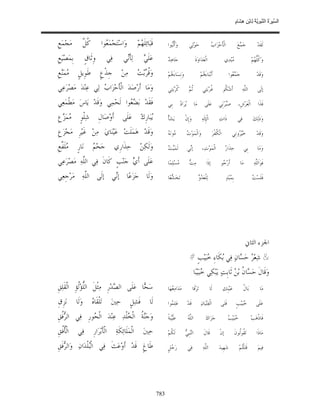 السيرة النبوية لابن هشام
لَقَدْ جَمَّعَ الْأَحْزَابُ حَوْلِي وَأَلَّبُوا قَبَائِلَهُمْ وَاسْتَجْمَعُوا كُلَّ مَجْمَعِ
وَكُلُّهُمْ مُبْدِي الْعَدَاوَةَ جَاهِدٌ عَلَيَّ لِأَنِّي فِي وِثَاقٍ بِمَصْيَعِ
وَقَدْ جَمَّعُوا أَبْنَاءَهُمْ وَنِسَاءَهُمْ وَقُرِّبْتُ مِنْ جِذْعٍ طَوِيلٍ مُمَنَّعِ
إلَى اللَّهِ أَشْكُو غُرْبَتِي ثُمَّ كُرْبَتِي وَمَا أَرْصَدَ الْأَحْزَابُ لِي عِنْدَ مَصْرَعِي
فَذَا الْعَرْشِ، صَبِّرْنِي عَلَى مَا يُرَادُ بِي فَقَدْ بَضَّعُوا لَحْمِي وَقَدْ يَاسَ مَطْمَعِي
وَذَلِكَ فِي ذَاتِ الْإِلَهِ وَإِنْ يَشَأْ يُبَارِكْ عَلَى أَوْصَالِ شِلْوٍ مُمَزَّعِ
وَقَدْ خَيَّرُونِي الْكُفْرَ وَالْمَوْتُ دُونَهُ وَقَدْ هَمَلَتْ عَيْنَايَ مِنْ غَيْرِ مَجْزَعِ
وَمَا بِي حِذَارُ الْمَوْتِ، إنِّي لَمَيِّتٌ وَلَكِنْ حِذَارِي جَحْمُ نَارٍ مُلَفَّعِ
فَوَاللَّهِ مَا أَرْجُو إذَا مِتُّ مُسْلِمًا عَلَى أَيِّ جَنْبٍ كَانَ فِي اللَّهِ مَصْرَعِي
فَلَسْتُ بِمُبْدٍ لِلْعَدُوِّ تَخَشُّعًا وَلَا جَزَعًا إنِّي إلَى اللَّهِ مَرْجِعِي
الجزء الثاني
شِعْرُ حَسَّانٍ فِي بُكَاءِ خُبَيْبٍ
وَقَالَ حَسَّانُ بْنُ ثَابِتٍ يَبْكِي خُبَيْبًا:
مَا بَالُ عَيْنِكَ لَا تَرْقَا مَدَامِعُهَا سَحًّا عَلَى الصَّدْرِ مِثْلَ اللُّؤْلُؤِ الْقَلِقِ
عَلَى خُبَيْبٍ فَتَى الْفِتْيَانِ قَدْ عَلِمُوا لَا فَشِلٍ حِينَ تَلْقَاهُ وَلَا نَزِقِ
فَاذْهَبْ خُبَيْبُ جَزَاكَ اللَّهُ طَيِّبَةً وَجَنَّةُ الْخُلْدِ عِنْدَ الْحُورِ فِي الرُّفُقِ
مَاذَا تَقُولُونَ إنْ قَالَ النَّبِيُّ لَكُمْ حِينَ الْمَلَائِكَةِ الْأَبْرَارِ فِي الْأُفُقِ
فِيمَ قَتَلْتُمْ شَهِيدَ اللَّهِ فِي رَجُلٍ طَاغٍ قَدْ أَوْعَثَ فِي الْبُلْدَانِ وَالرُّفَقِ
783